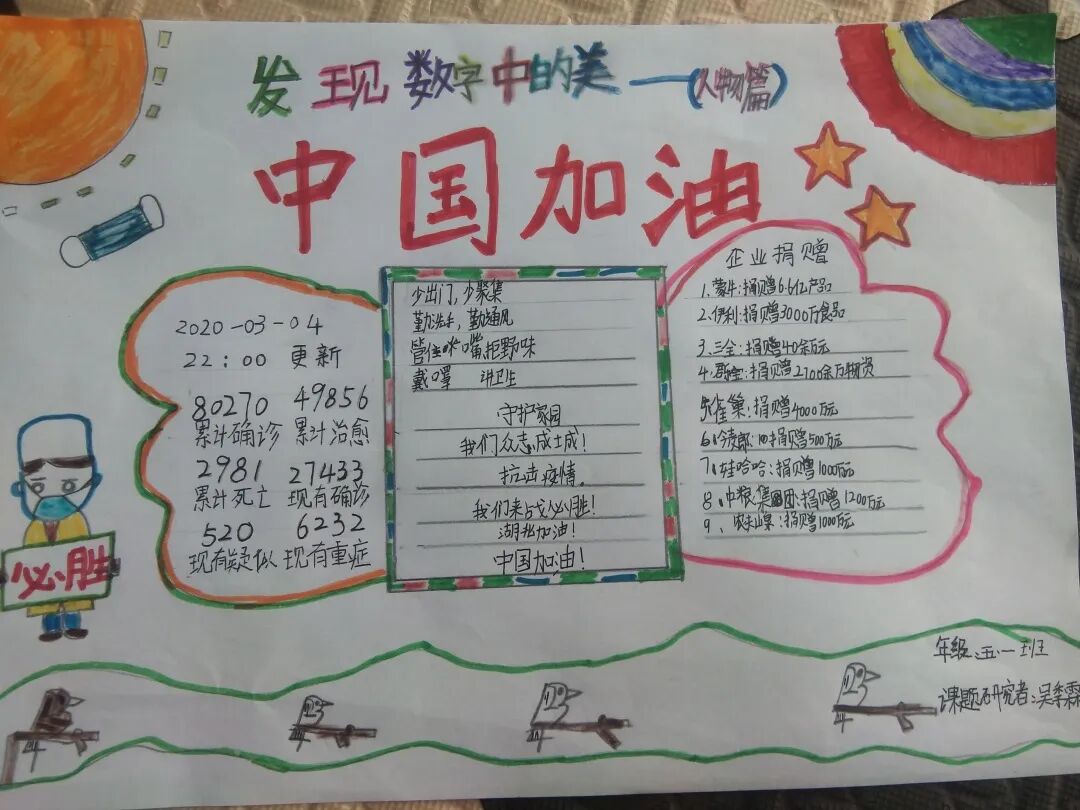 发现数字中的美——(人物篇)
中国加油
2020-03-04
22:00 更新
80270 49856
累计确诊 累计治愈
2981 27433
累计死亡 现有确诊
520 6232
现有疑似 现有重症
必胜
少出门,少聚集
勤洗手,勤通风
管住嘴,拒野味
戴口罩 讲卫生
守护家园
我们众志成城!
抗击疫情。
我们来战必胜!
湖北加油!
中国加油!
企业捐赠
1.蒙牛:捐赠6.6亿产品
2.伊利:捐赠3000万食品
3、三全:捐赠40余万元
4、捐赠2700余万物资
雀巢:捐赠4000万元
6、今麦郎:捐赠500万元
7、娃哈哈:捐赠1000万元
8、中粮集团:捐赠1200万元
9、捐赠1000万元
年级:五.一班
课题研究者:吴季霖